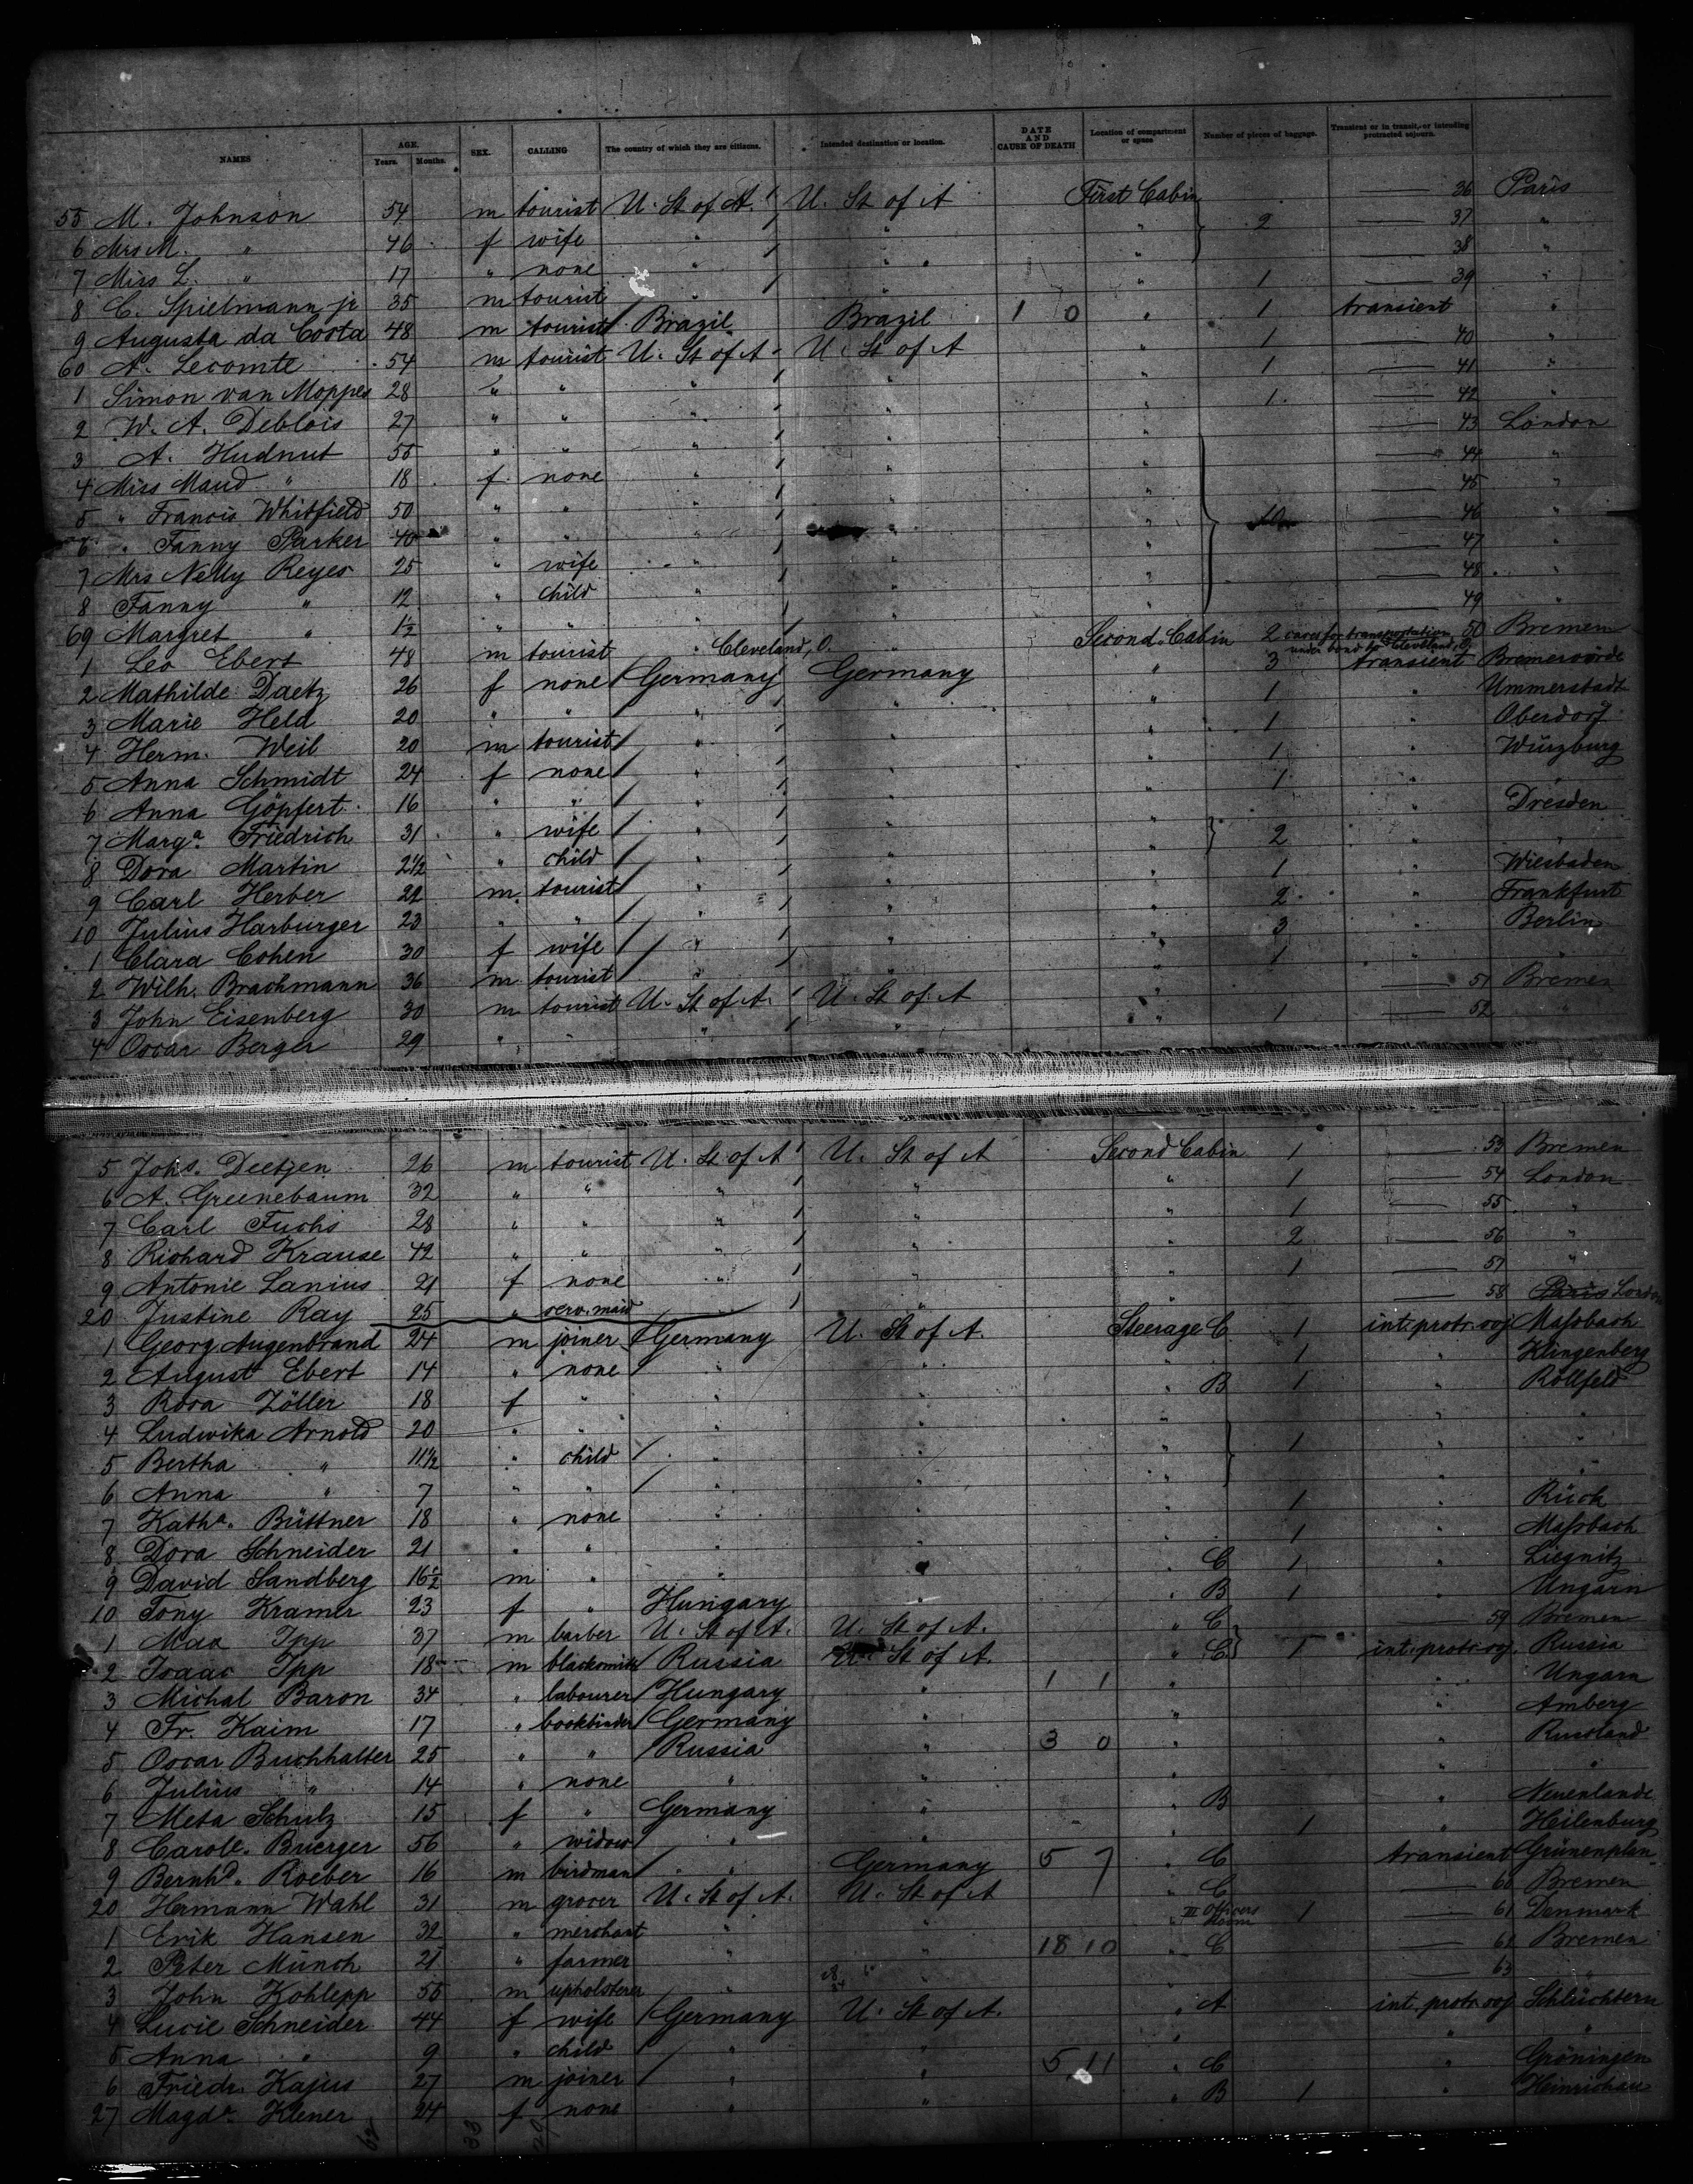 NAMES AGE. Years. Months. SEX. CALLING The country of which they are citizens. Intended destination or location. DATE AND CAUSE OF DEATH Location of compartment or space Number of pieces of baggage. Transient or in transit, or intending protracted sojourn.
55 M. Johnson 54 m tourist U. St of A. U. St of A First Cabin 36 Paris
6 Mrs M. " 46 f wife " " " 2 37 "
7 Miss L. " 17 " none " " " 38 "
8 C. Spielmann jr 35 m tourist " " " 1 39 "
9 Augusta da Costa 48 m tourist Brazil Brazil 1 0 " 1 transient "
60 A. Lecomte 54 m tourist U. St of A U. St of A " 1 40 "
1 Simon van Moppes 28 " " " " " 1 41 "
2 W. A. Deblois 27 " " " " " 1 42 "
3 A. Hudnut 55 " " " " " 43 London
4 Miss Maud " 18 f none " " " 44 "
5 " Francis Whitfield 50 " " " " " 45 "
6 " Fanny Parker 40 " " " " " 10 46 "
7 Mrs Nelly Reyes 25 " wife " " " 47 "
8 Fanny " 12 " child " " " 48 "
69 Margret " 1½ " " " " " 49 "
1 Leo Ebert 48 m tourist " Cleveland, O. Second Cabin 2 cases for transportation under bond to Cleveland, O. 50 Bremen
2 Mathilde Daetz 26 f none Germany Germany " 3 transient Bremervörde
3 Marie Held 20 " " " " " 1 " Ummerstadt
4 Herm. Weil 20 m tourist " " " 1 " Oberdorf
5 Anna Schmidt 24 f none " " " 1 " Würzburg
6 Anna Göpfert 16 " " " " " 1 " "
7 Marga. Friedrich 31 " wife " " " 2 " Dresden
8 Dora Martin 2½ " child " " " "
9 Carl Herber 22 m tourist " " " 1 " Wiesbaden
10 Julius Harburger 23 " " " " " 2 " Frankfurt
1 Clara Cohen 30 f wife " " " 3 " Berlin
2 Wilh. Brachmann 36 m tourist " " " 1 "
3 John Eisenberg 30 m tourist U. St of A. U. St of A " 51 Bremen
4 Oscar Berger 29 " " " " " 1 52 "
5 Johs. Deetjen 26 m tourist U. St of A U. St of A Second Cabin 1 53 Bremen
6 A. Greenebaum 32 " " " " " 1 54 London
7 Carl Fuchs 28 " " " " " 1 55 "
8 Richard Krause 42 " " " " " 2 56 "
9 Antonie Lanius 21 f none " " " 1 57 "
20 Justine Ray 25 " serv. maid " " 58 Paris London
1 Georg Augenbrand 24 m joiner Germany U. St of A. Steerage C 1 int. protr. soj Massbach
2 August Ebert 14 " none " " " 1 " Klingenberg
3 Rosa Zöller 18 f " " " " B 1 " Röllfeld
4 Ludwika Arnold 20 " " " " " " "
5 Bertha " 11½ " child " " " 1 " "
6 Anna " 7 " " " " " " "
7 Katha. Büttner 18 " none " " " 1 " Rück
8 Dora Schneider 21 " " " " " 1 " Massbach
9 David Sandberg 16½ m " " " " C 1 " Liegnitz
10 Tony Kramer 23 f " Hungary " " B 1 " Ungarn
1 Max Ipp 37 m barber U. St of A. U. St of A. " C 59 Bremen
2 Isaac Ipp 18 m blacksmith Russia U. St of A. " C 1 int. protr. soj. Russia
3 Michal Baron 34 " labourer Hungary " 1 1 " " Ungarn
4 Fr. Kaim 17 " bookbinder Germany " " " Amberg
5 Oscar Buchhalter 25 " " Russia " 3 0 " " Russland
6 Julius " 14 " none " " " " "
7 Meta Schulz 15 f " Germany " " B " Neuenlande
8 Carole. Buerger 56 " widow " " " 1 " Heilenburg
9 Bernhd. Roeber 16 m birdman " Germany 5 7 " C transient Grünenplan
20 Hermann Wahl 31 m grocer U. St of A. U. St of A " C 60 Bremen
1 Erik Hansen 32 " merchant " " " III Officers Room 1 61 Denmark
2 Peter Münch 21 " farmer " " 18 10 " C 61 Bremen
3 John Kohlepp 55 m upholsterer " " " 63 "
4 Lucie Schneider 44 f wife Germany U. St of A. " A int. protr. soj Schlüchtern
5 Anna " 9 " child " " " " "
6 Friedr. Kajus 27 m joiner " " 5 11 " C " Gröningen
27 Magda. Klener 24 f none " " " B 1 " Heinrichau